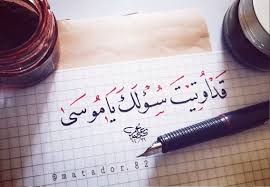 قَدْ أُوتِيتَ سُؤْلَكَ يَا مُوسَىٰ
@matador.82